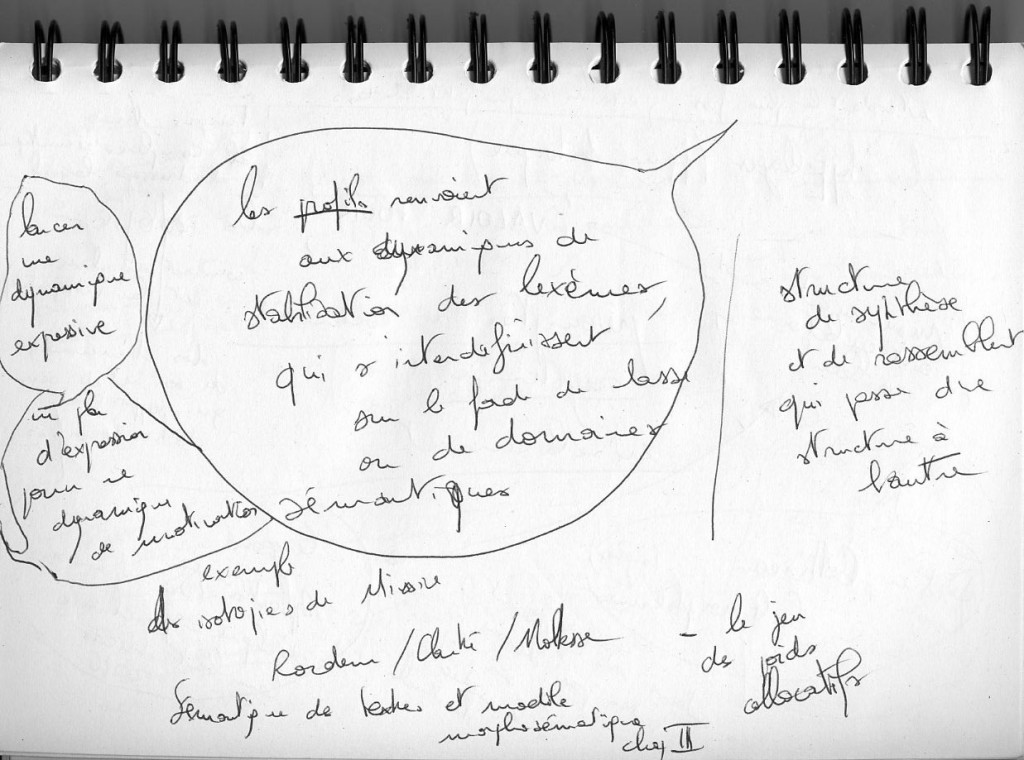 les profils renvoient
aux dynamiques de
stabilisation des lexèmes,
qui s'interdéfinissent
sur le fond de
ou de domaines
sémantiques
lancer
une
dynamique
expressive
un
d'expression
pour une
dynamique
de motivation
structure
de synthèse
et de rassemblent
qui passe d'une
structure à
l'autre
exemple
isotopies de
Rondeur / Clarté / Molesse
- le jeu
des poids
allocatifs
Sémantique des textes et modèle
morphosémantique
chap III